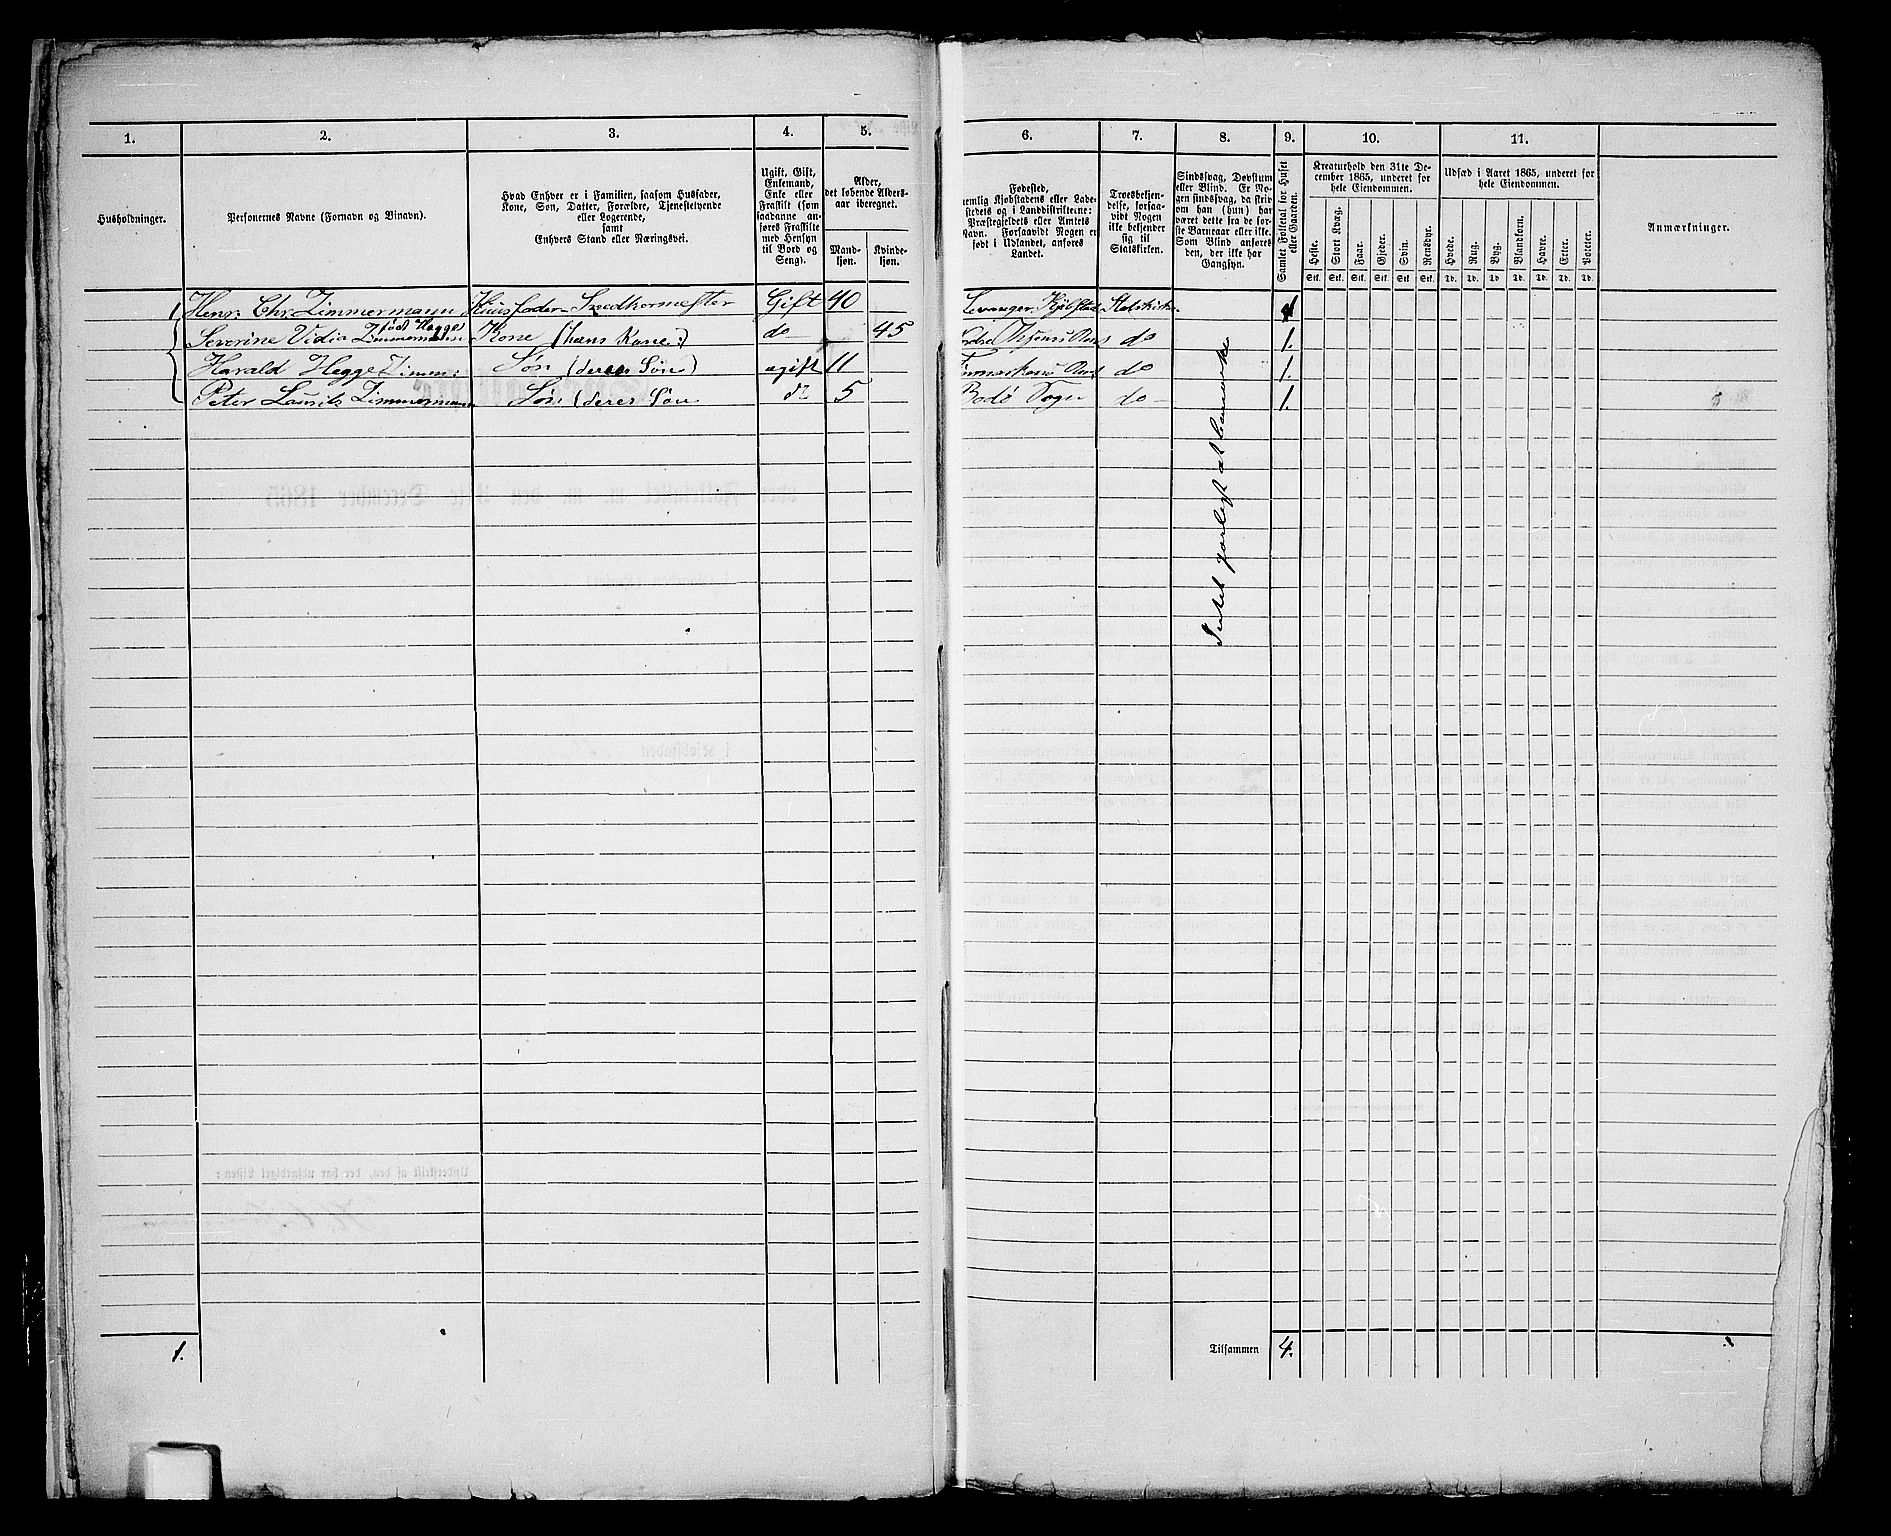 1.
2.
3.
4.
5.
6.
7.
8.
9.
10.
11.
Husholdninger.
Personernes Navne (Fornavn og Vinavn).
Hvad Enhver er i Familien, saasom Husfader,
Kone, Søn, Datter, Forældre, Tjenestetyende
eller Logerende,
samt
Enhvers Stand eller Næringsvei.
Ugift, Gift,
Enkemand,
Enke eller
Fraskilt (som
saadanne an-
føres Fraskilte
med Hensyn
til Bord og
Seng).
Alder,
det løbende Alders-
aar iberegnet.
Mand-
kjøn.
Kvinde-
kjøn.
Fødested,
nemlig Kjøbstadens eller Lade-
stedets og i Landdistrikterne:
Præstegjeldets eller Amtets
Navn. Forsaavidt Nogen er
født i Udlandet, anføres
Landet.
Troesbekjen-
delse, forsaa-
vidt Nogen
ikke bekjender
sig til
Statskirken.
Sindssvag, Døvstum
eller Blind. Er No-
gen sindssvag, da skriv
om han (hun) har
været dette fra de før-
ste Barneaar eller ikke.
Som Blind anføres
den, der ikke har
Gangsyn.
Samlet Folketal for Huset
eller Gaarden.
Kreaturhold den 31te De-
cember 1865, underet for
hele Eiendommen.
Heste.
Stort Kvæg.
Faar.
Gjeder.
Svin.
Rensdyr.
Stk. Stk. Stk. Stk. Stk. Stk.
Udsæd i Aaret 1865, underet for
hele Eiendommen.
Hvede.
Rug.
Byg.
Blandkorn.
Havre.
Erter.
Poteter.
Td. Td. Td. Td. Td. Td. Td.
Anmærkninger.
1 Henr. Chr. Zimmermann Huusfader Snedkermester Gift 40 Levanger Kjøbstad Statskirken 1
født Hegge
Severine Vidia Zimmermann Kone (hans Kone:) do 45 do 1.
Harald Hegge Zimm: Søn (deres Søn) ugift 11 do 1.
Peter Laurits Zimmermann Søn (deres Søn do 5 Bodø do 1.
Intet at bemærke
1.
Tilsammen 4.